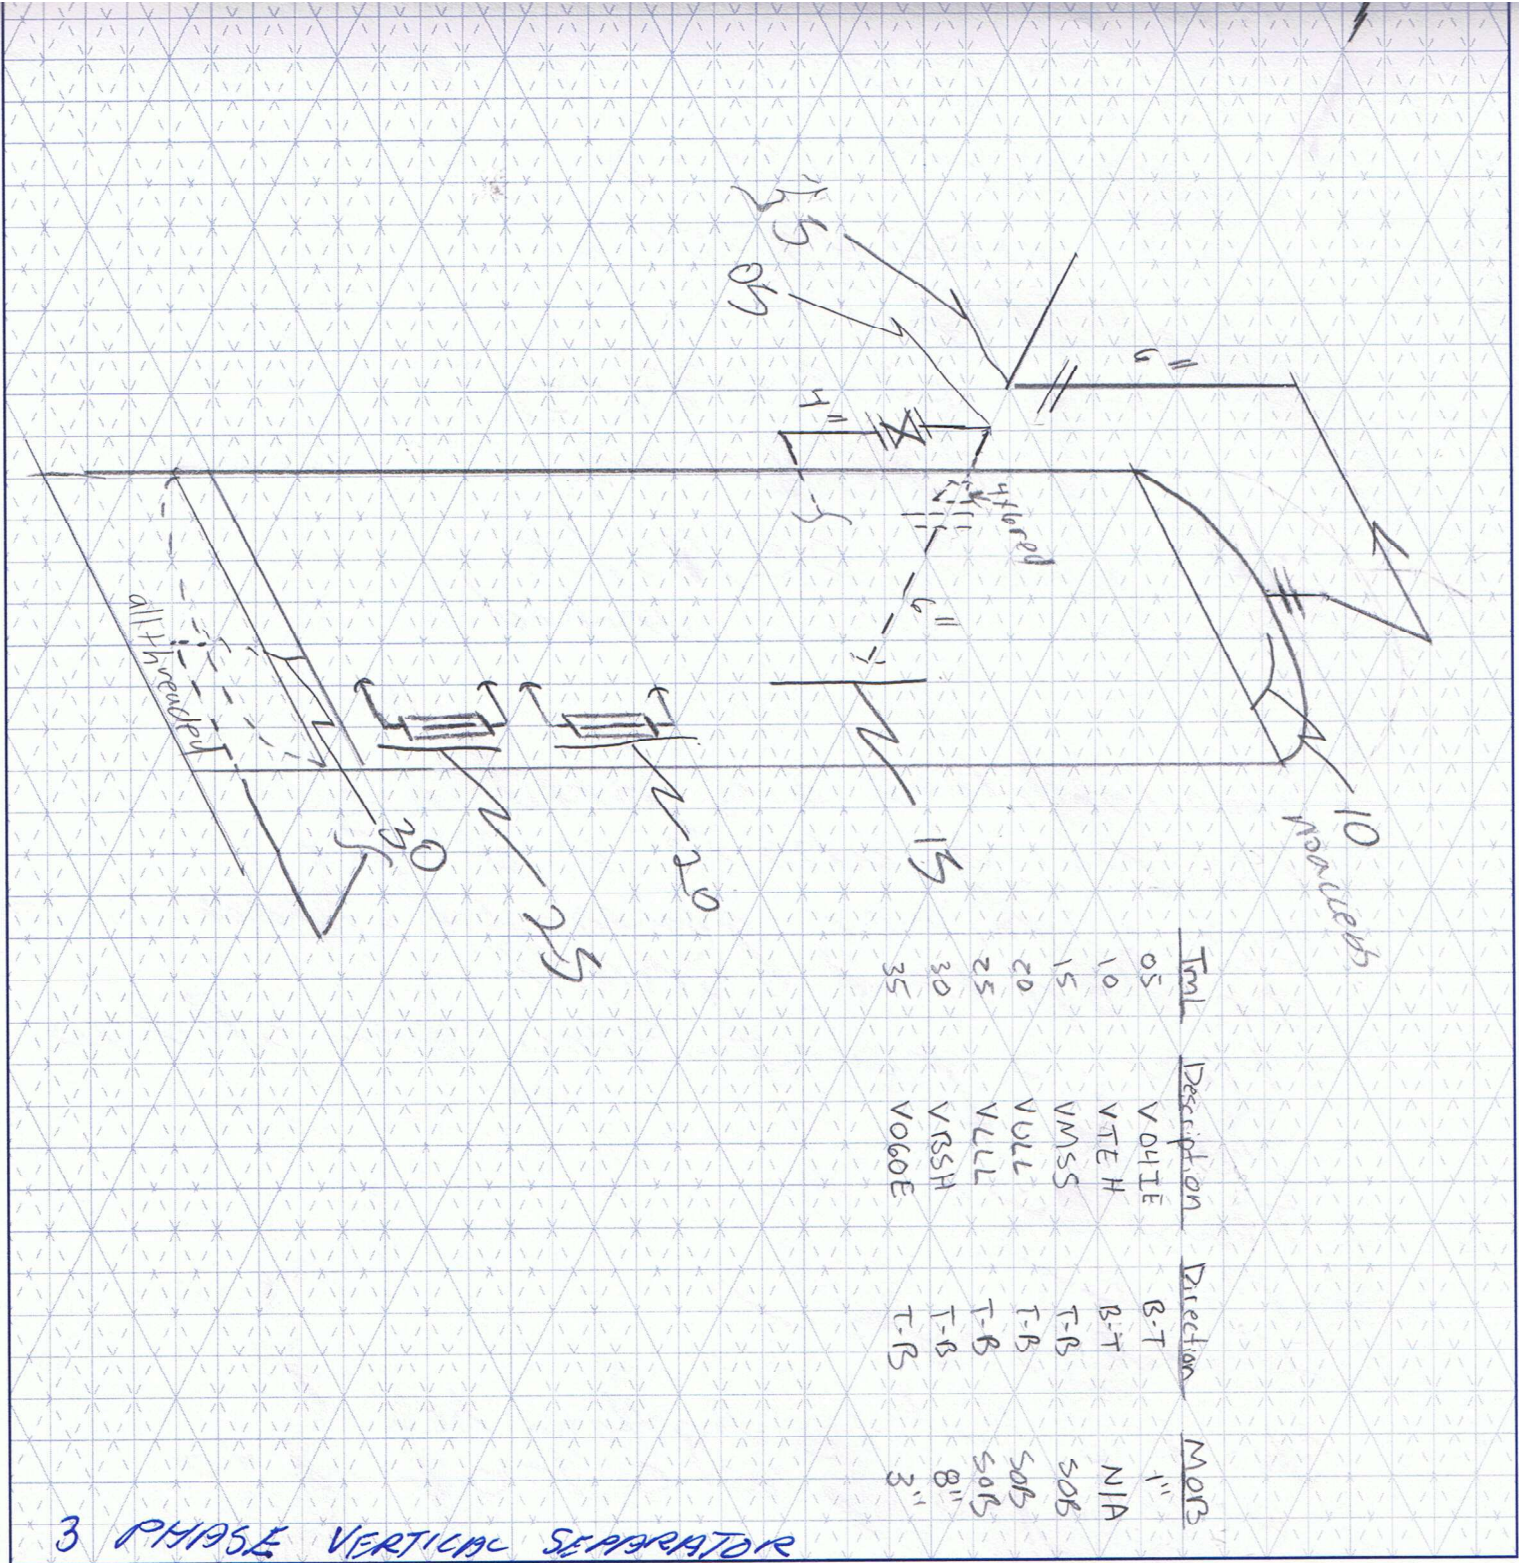 35
05
6"
4"
4x6 red
6"
all threaded
10
no access
15
20
25
30
Tml Description Direction MOB
05 V04IE B-T 1"
10 VTEH B-T N/A
15 VMSS T-B SOB
20 VULL T-B SOB
25 VLLL T-B SOB
30 VBSH T-B 8"
35 V060E T-B 3"
3 PHASE VERTICAL SEPARATOR